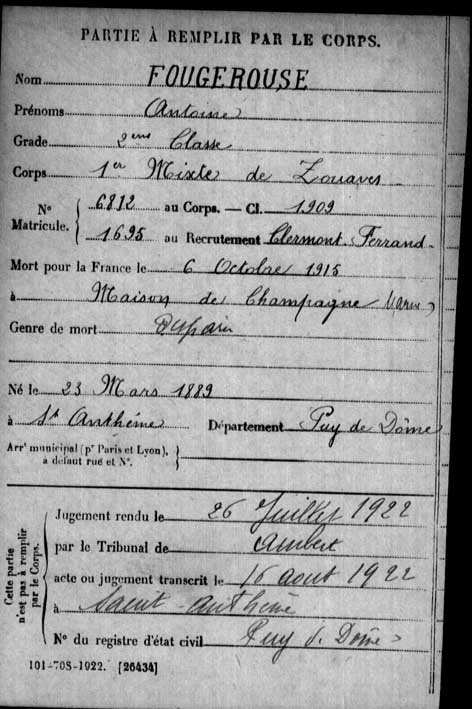 PARTIE À REMPLIR PAR LE CORPS.
Nom FOUGEROUSE
Prénoms Antoine
Grade 2eme Classe
Corps 1er Mixte de Zouaves
N° Matricule. { 6812 au Corps. — Cl. 1909
1695 au Recrutement Clermont-Ferrand
Mort pour la France le 6 Octobre 1915
à Maison de Champagne (Marne)
Genre de mort Disparu
Né le 23 Mars 1889
à St Anthème Département Puy de Dôme
Arrt municipal (pr Paris et Lyon), à défaut rue et N°. }
Cette partie n'est pas à remplir par le Corps.
Jugement rendu le 26 Juillet 1922
par le Tribunal de Ambert
acte ou jugement transcrit le 16 aout 1922
à Saint-Anthème
N° du registre d'état civil Puy d. Dôme
101-708-1922. [26434]